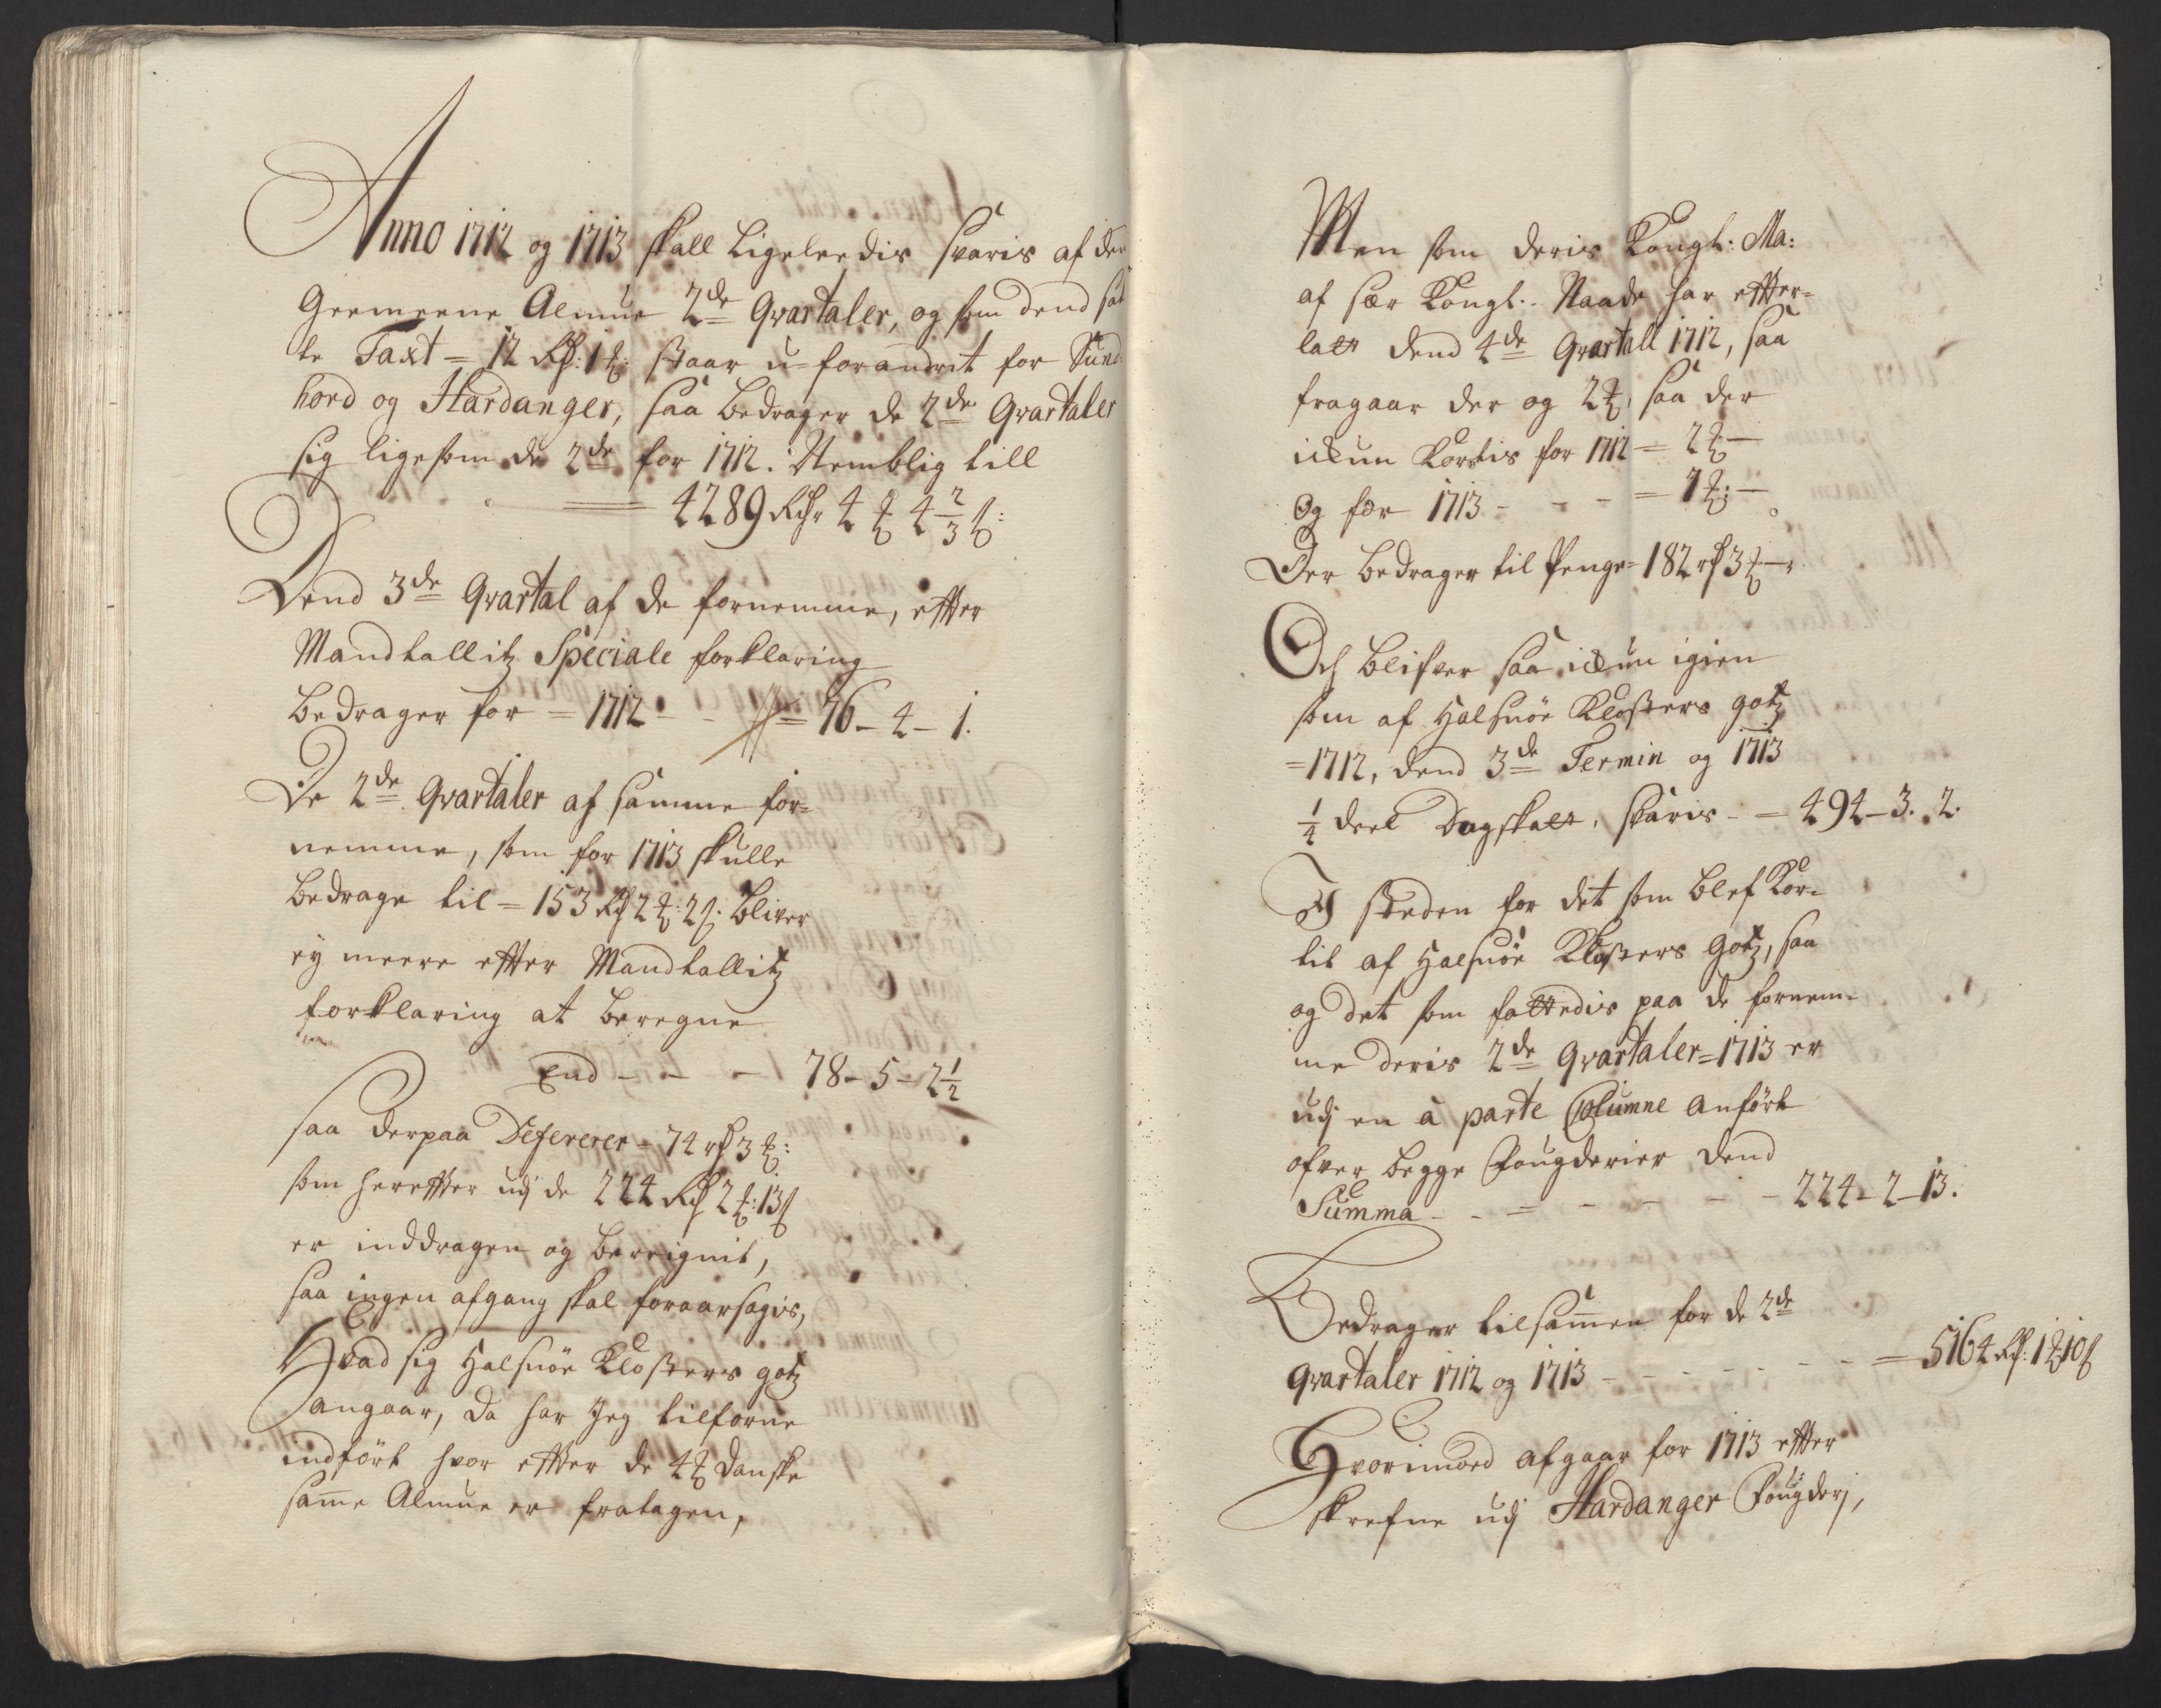 Anno 1712 og 1713 skall Ligeleedis svaris af den
Gremeene Almue 2de Qvartaler, og som dend sat
te Taxt = 12 Rd: 1 ort: staar u-forandret for Sund:
hord og Hardanger, saa bedrager de 2de Qvartaler
sig ligesom de 2de for 1712. Nemblig till
= 4289 Rdr 4 ort 4 2/3 s:
Dend 3de Qvartal af de fornemme, efter
Mandtallitz Speciale forklaring
bedrager for = 1712 - - = 76 - 4 - 1.
De 2de Qvartaler af samme for=
nemme, som for 1713 skulle
bedrage til = 153 Rd 2 ort: 2 s. bliver
ey meere efter Mandtallitz
forklaring at beregne
End - - - 78 - 5 - 2 1/2
saa derpaa Defererer = 74 rd 3 ort:
som herefter udj de 224 Rd 2 ort: 13 s
er inddragen og bereignit,
saa ingen afgang skal foraarsagis,
Hvad sig Halsnöe Klosters gotz
angaar, da har Jeg tilforne
indfört hvor efter de 4 ort danske
samme Almue er fratagen,
Men som deris Kongl: Ma:
af sær Kongl: Naade har efter=
latt dend 4de Qvartall 1712, saa
fragaar der og 2 ort, saa der
ickun Kortis for 1712 = 2 ort —
Og for 1713 - - - = 1 ort: —
Der bedrager til Penge = 182 rd 3 ort —
Och blifver saa ickun igien
som af Halsnöe Klosters gotz
= 1712, dend 3de Termin og 1713
1/4 deel Dagskatt, svaris - = 494 - 3. 2.
I steden for det som blef Kor=
tit af Halsnöe Klosters Gotz, saa
og det som fattedis paa de fornem=
me deris 2de Qvartaler = 1713 er
udj en à parte Columne anfört
ofver begge Fougderier dend
Summa - - = - - - - 224 - 2 - 13.
Bedrager tilsammen for de 2de
Qvartaler 1712 og 1713 - - - - - - = 5164 Rd: 1 ort 10 s
Hvorimoed afgaar for 1713 efter
skrefne udj Hardanger Fougderj,